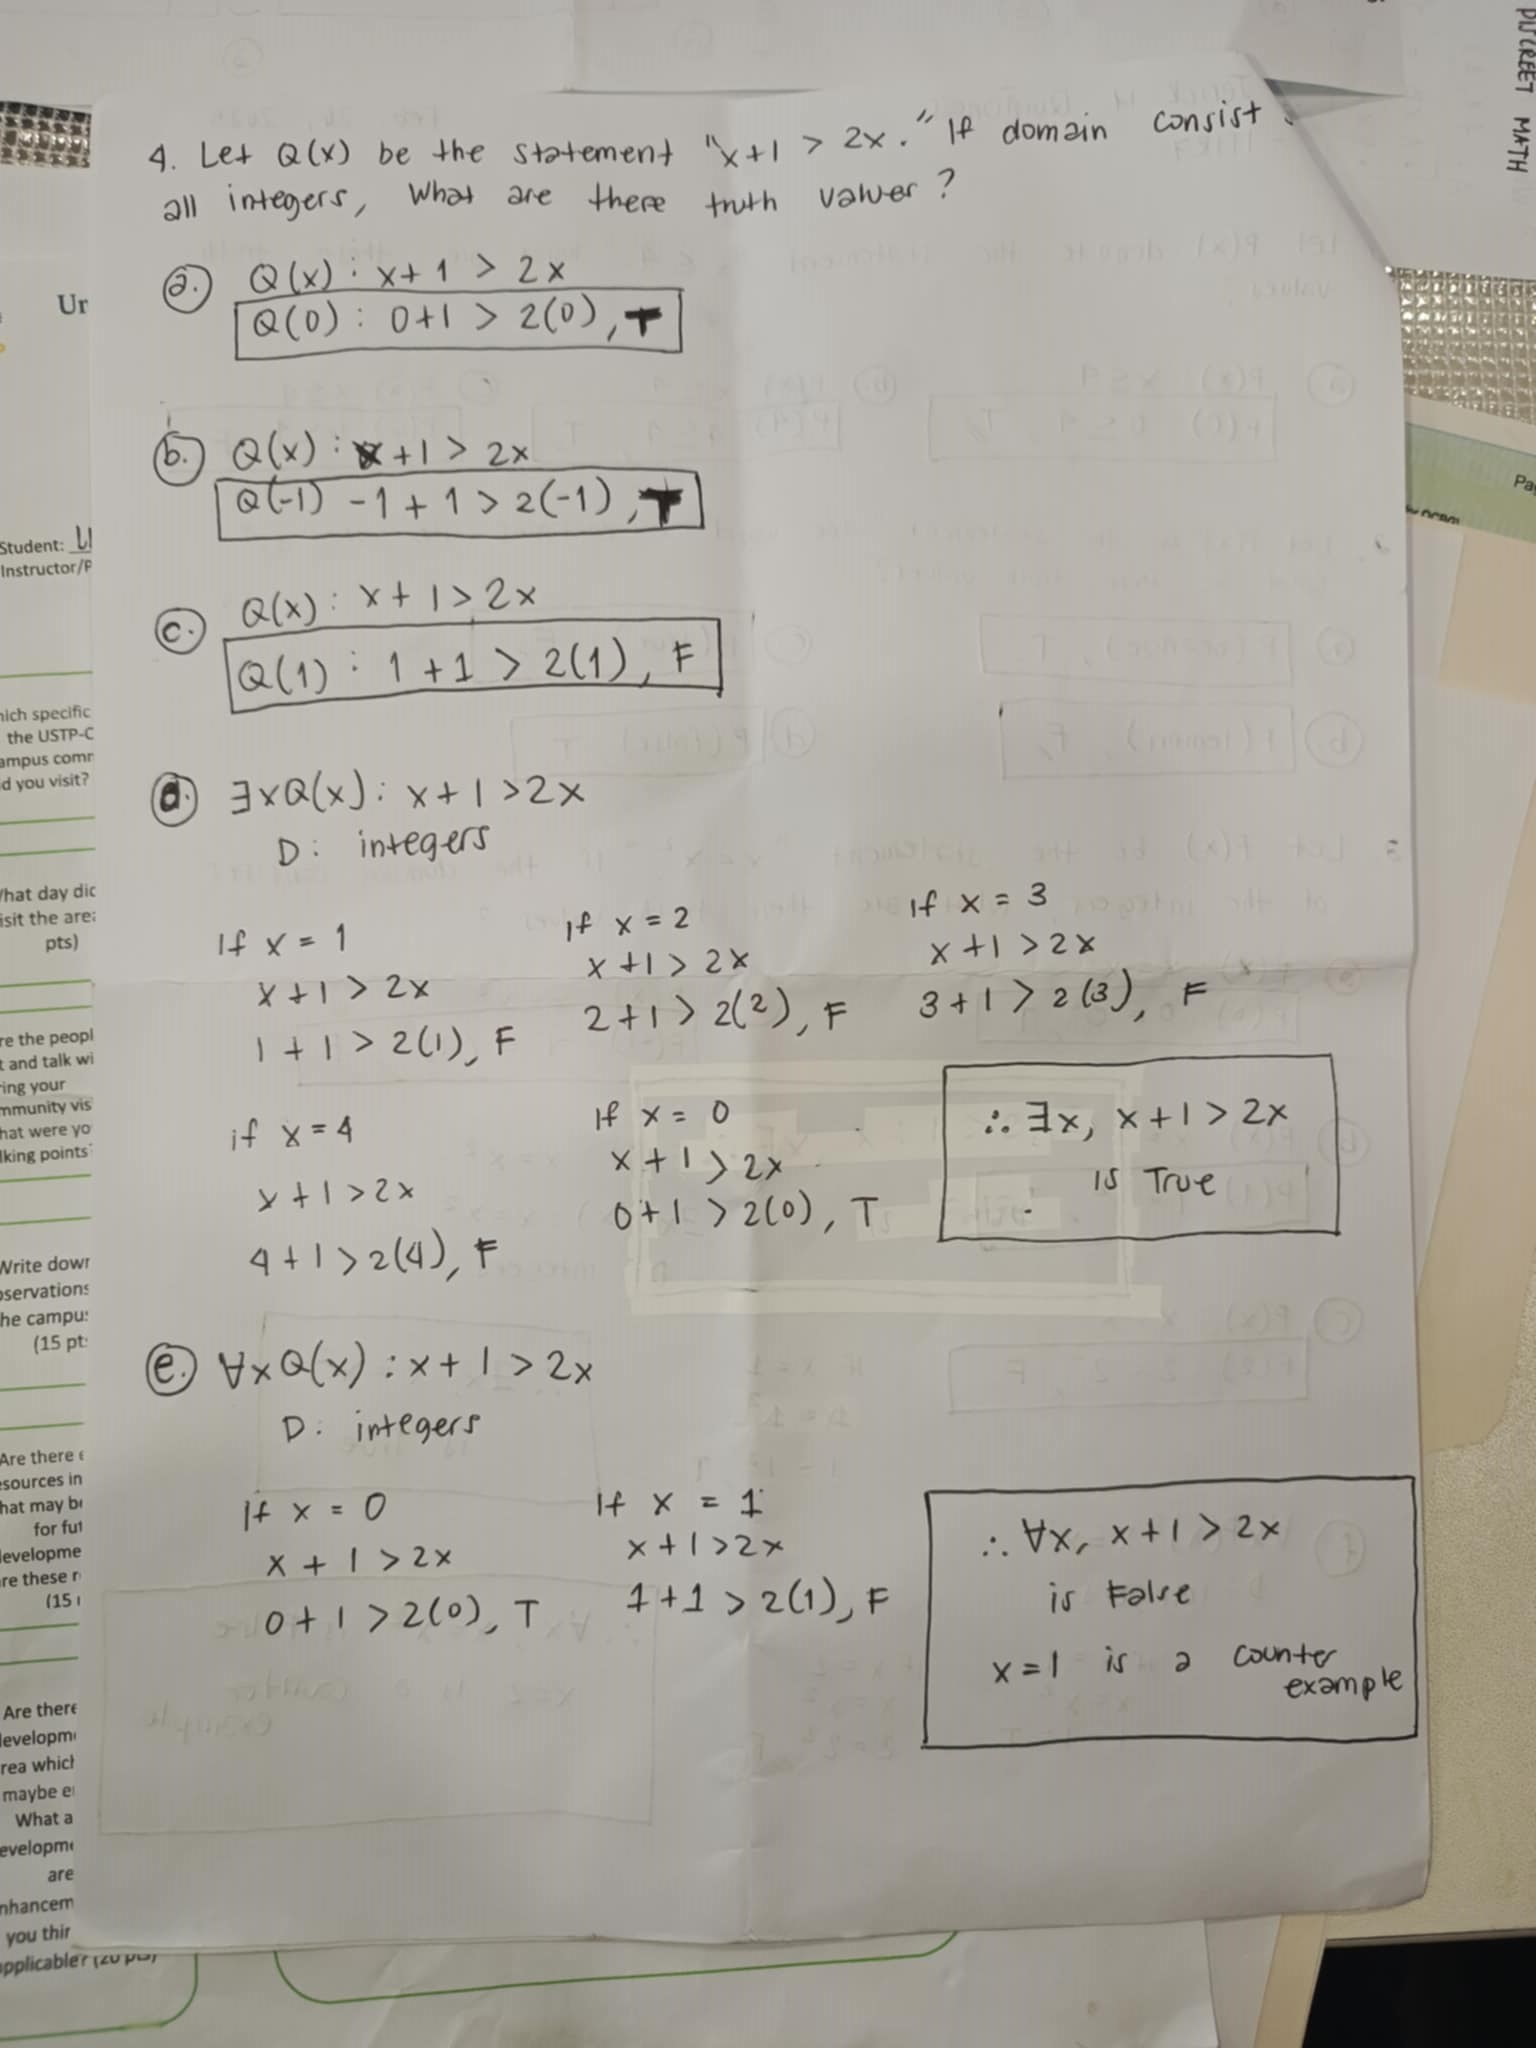 4. Let Q(x) be the statement "x+1 > 2x." If domain consist
all integers, What are there truth values?
a. Q(x) : x+1 > 2x
Q(0) : 0+1 > 2(0), T
b. Q(x) : x+1 > 2x
Q(-1) -1+1 > 2(-1), T
c. Q(x) : x+1 > 2x
Q(1) : 1+1 > 2(1), F
d. ∃xQ(x) : x+1 > 2x
D: integers
If x = 1
x+1 > 2x
1+1 > 2(1), F
if x = 2
x+1 > 2x
2+1 > 2(2), F
if x = 3
x+1 > 2x
3+1 > 2(3), F
if x = 4
x+1 > 2x
4+1 > 2(4), F
If x = 0
x+1 > 2x
0+1 > 2(0), T
∴ ∃x, x+1 > 2x
is True
e. ∀xQ(x) : x+1 > 2x
D: integers
If x = 0
x+1 > 2x
0+1 > 2(0), T
If x = 1
x+1 > 2x
1+1 > 2(1), F
∴ ∀x, x+1 > 2x
is False
x=1 is a counter
example
DISCREET MATH
Ur
Student:
Instructor/P
hich specific
the USTP-C
ampus comr
d you visit?
What day did
isit the area
pts)
re the peopl
t and talk wi
ring your
mmunity vis
hat were yo
lking points
Write down
bservations
he campus
(15 pts
Are there
esources in
hat may be
for fut
developme
are these r
(15
Are there
developm
rea which
maybe e
What a
evelopme
are
nhancem
you thin
applicable? (20 pts)